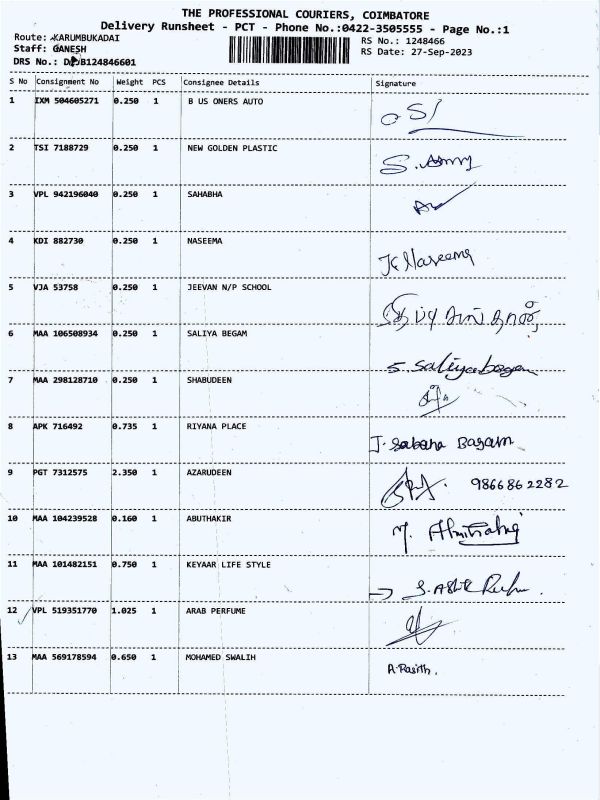 THE PROFESSIONAL COURIERS, COIMBATORE
Delivery Runsheet - PCT - Phone No.:0422-3505555 - Page No.:1
Route: KARUMBUKADAI
RS No.: 1248466
Staff: GANESH
RS Date: 27-Sep-2023
DRS No.: B124846601
S No Consignment No Weight PCS Consignee Details Signature
1 IXM 504605271 0.250 1 B US ONERS AUTO
2 TSI 7188729 0.250 1 NEW GOLDEN PLASTIC
3 VPL 942196040 0.250 1 SAHABHA
4 KDI 882730 0.250 1 NASEEMA K Naseema
5 VJA 53758 0.250 1 JEEVAN N/P SCHOOL
6 MAA 106508934 0.250 1 SALIYA BEGAM S. Saliyabegam
7 MAA 298128710 0.250 1 SHABUDEEN
8 APK 716492 0.735 1 RIYANA PLACE J. Sabana Bagam
9 PGT 7312575 2.350 1 AZARUDEEN 9866862282
10 MAA 104239528 0.160 1 ABUTHAKIR
11 MAA 101482151 0.750 1 KEYAAR LIFE STYLE
12 VPL 519351770 1.025 1 ARAB PERFUME
13 MAA 569178594 0.650 1 MOHAMED SWALIH A.Rasith.